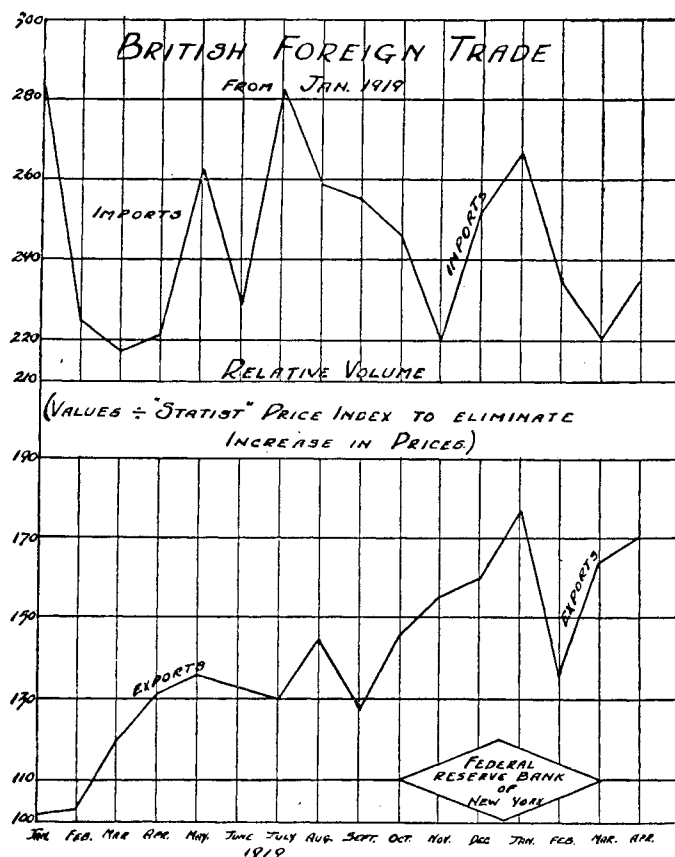 BRITISH FOREIGN TRADE
FROM JAN. 1919
300
280
260
240
220
210
IMPORTS
IMPORTS
RELATIVE VOLUME
(VALUES ÷ "STATIST" PRICE INDEX TO ELIMINATE
INCREASE IN PRICES)
190
170
150
130
110
100
EXPORTS
EXPORTS
FEDERAL
RESERVE BANK
OF
NEW YORK
JAN. FEB. MAR APR. MAY. JUNE JULY AUG. SEPT. OCT. NOV. DEC JAN. FEB. MAR. APR.
1919